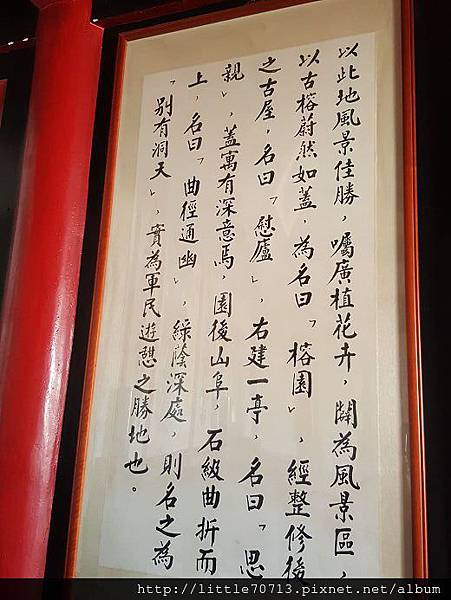 以此地風景佳勝，囑廣植花卉，闢為風景區，
以古榕蔚然如蓋，為名曰「榕園」，經整修後
之古屋，名曰「慰廬」，右建一亭，名曰「思
親」，蓋寓有深意焉，園後山阜，石級曲折而
上，名曰「曲徑通幽」，綠蔭深處，則名之為
「別有洞天」，實為軍民遊憩之勝地也。
http://little70713.pixnet.net/album